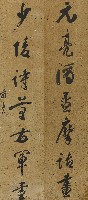 元亮酒孟摩詰畫
少陵詩藁右軍書